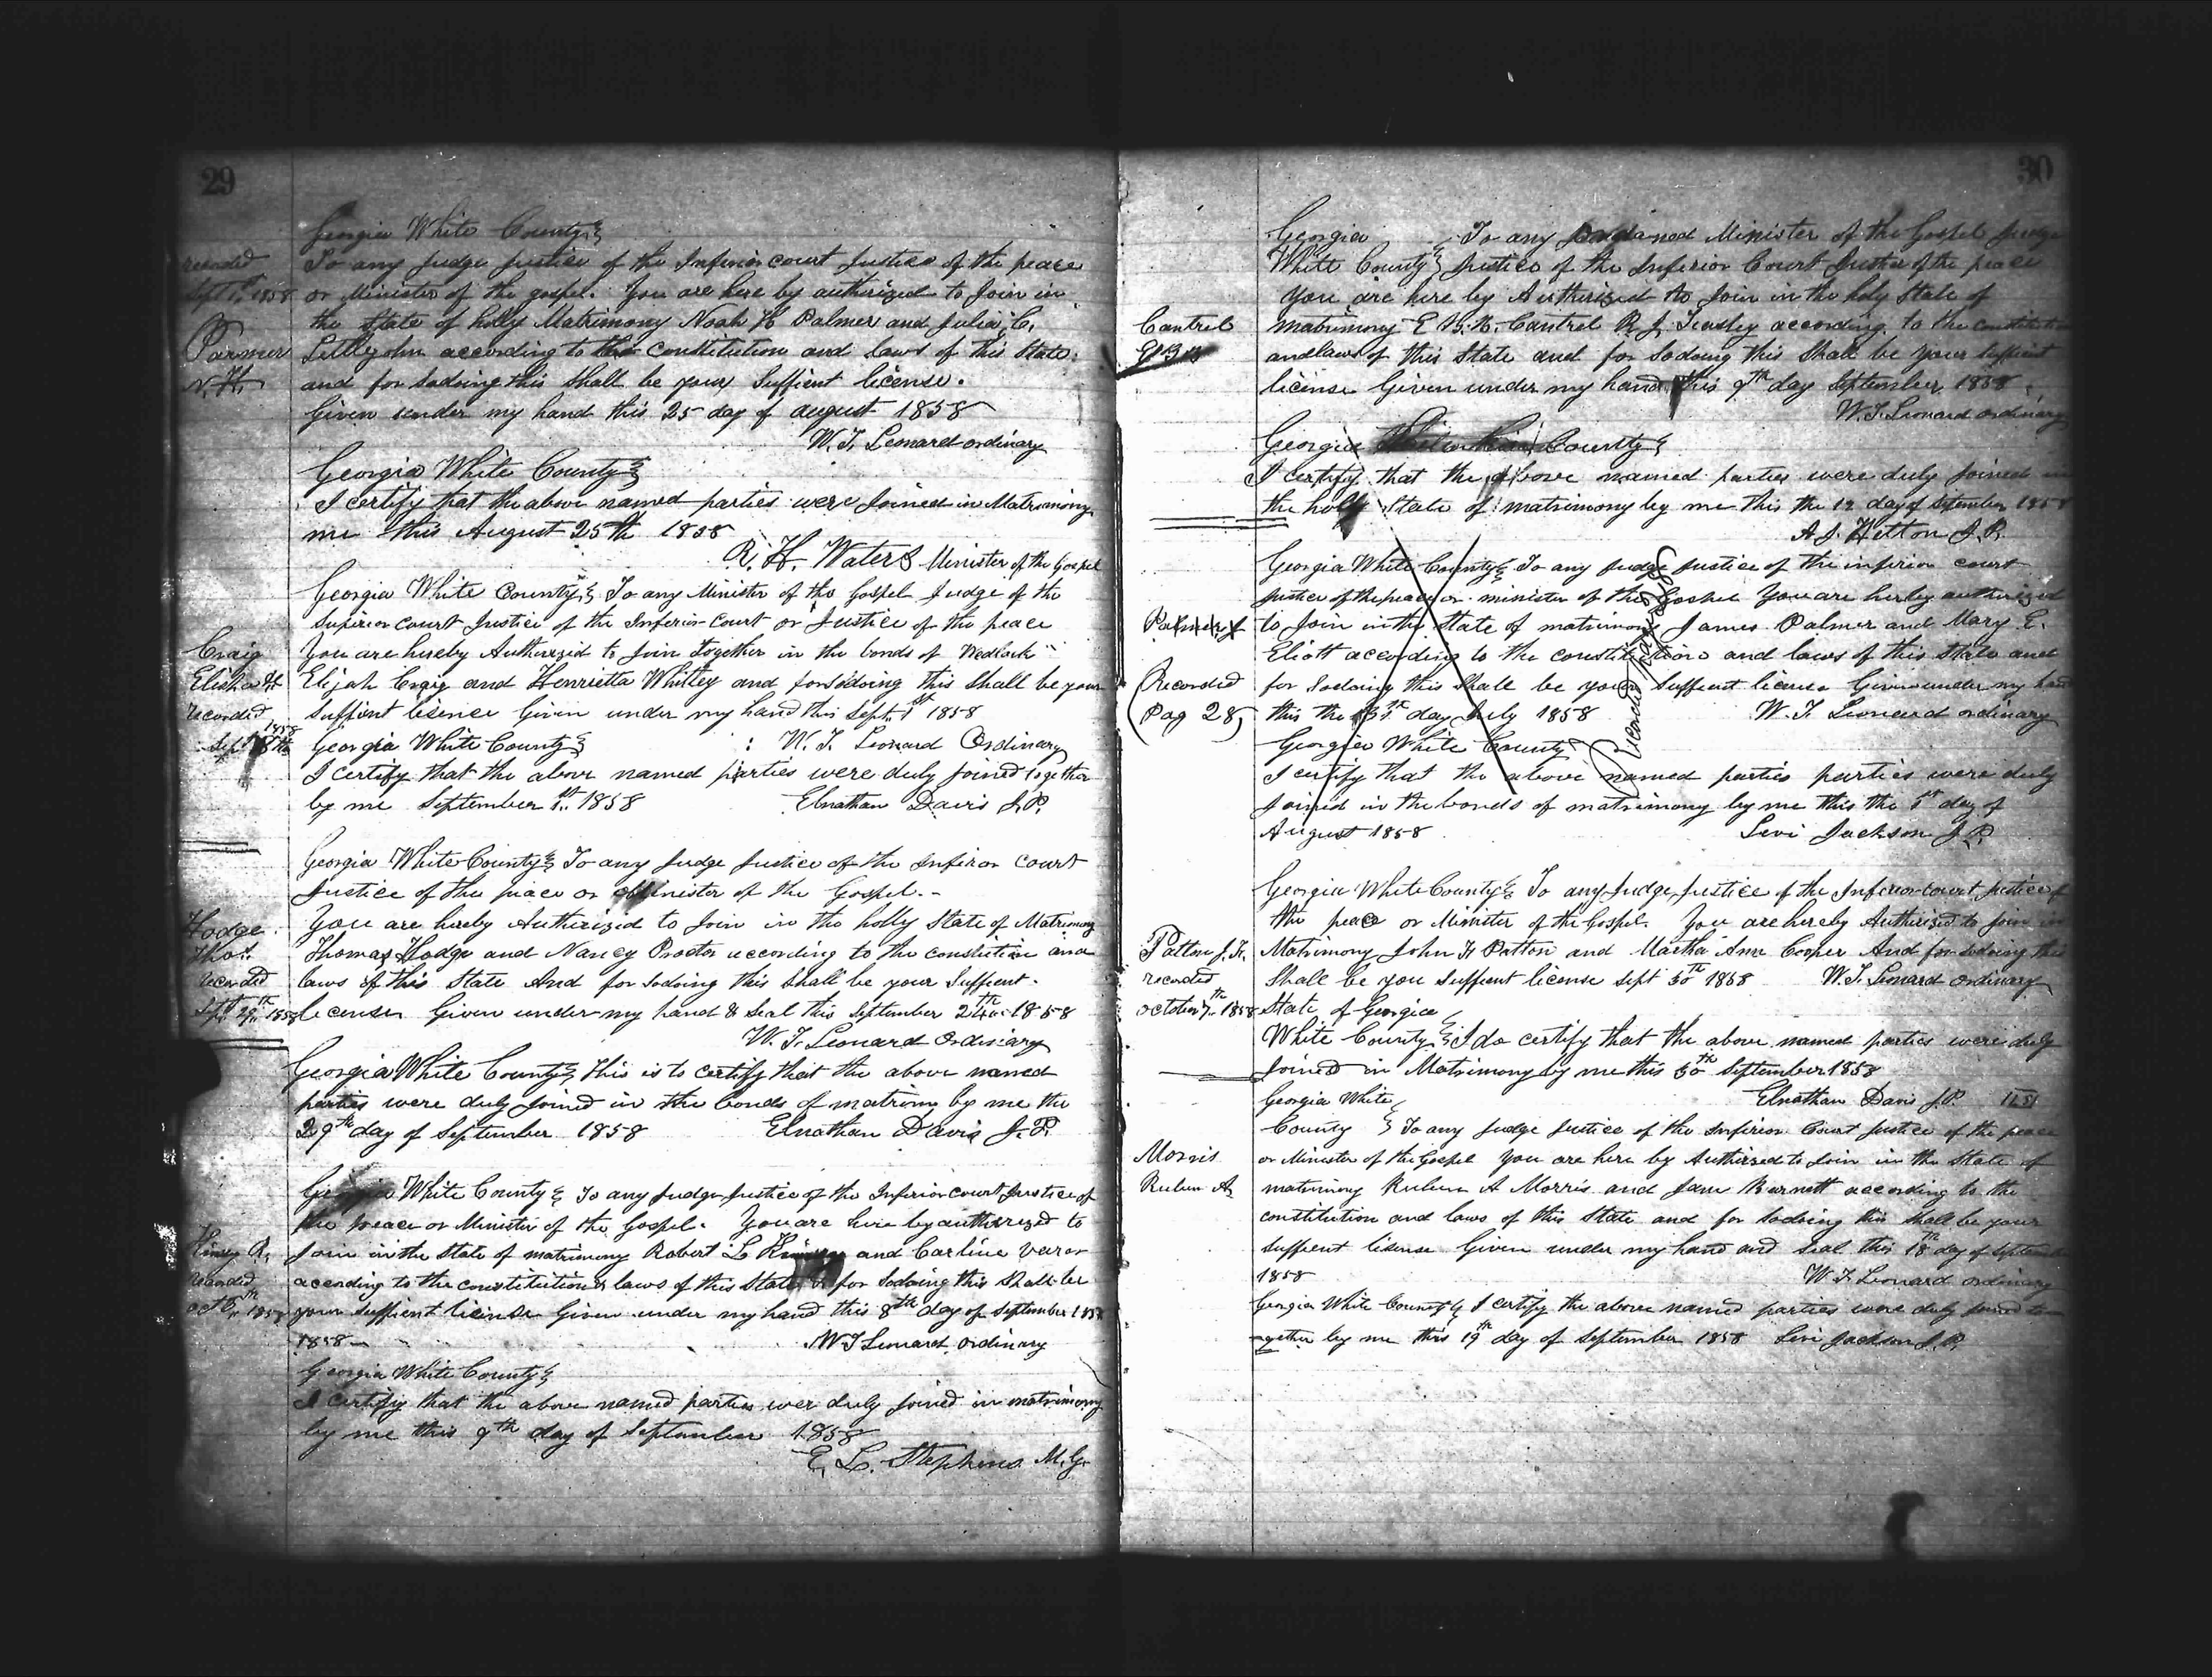 29
Georgia White County
recorded
To any Judge Justice of the Inferior court Justice of the peace
Sept 1858
or Minister of the gospel. You are here by authorized to Join in
the State of holly Matrimony Noah H Palmer and Julia C.
Parmer
Littlejohn according to the constitution and laws of this State.
N. H.
and for Sodoing this Shall be your Suffient license.
Given under my hand this 25 day of august 1858
W. T. Leonard ordinary
Georgia White County
I certify that the above named parties were Joined in Matrimony
me this August 25th 1858
R. H. Waters Minister of the Gospel
Georgia White County To any Minister of the Gospel Judge of the
Superior court Justice of the Inferior Court or Justice of the peace
Craig
You are hereby Authorized to Join together in the bonds of Wedlock
Elisha H
Elijah Craig and Henrietta Whitley and for sodoing this Shall be your
recorded
Suffient lisence Given under my hand this Sept. 1st 1858
Sept 8th 1858
Georgia White County W. T. Leonard Ordinary
I certify that the above named parties were duly Joined together
by me September 1st 1858 Elnathan Davis J.P.
Georgia White County To any Judge Justice of the Inferior court
Justice of the peace or Minister of the Gospel.
Hodge
You are hereby Authorized to Join in the holly State of Matrimony
Thos.
Thomas Hodge and Nancy Proctor according to the constitution and
recorded
laws of this State And for Sodoing this Shall be your Suffient
Sept 29th 1858
license Given under my hand & Seal this September 24th 1858
W. T. Leonard Ordinary
Georgia White County This is to certify that the above named
parties were duly Joined in the bonds of matrimony by me the
29th day of September 1858 Elnathan Davis J.P.
Georgia White County To any Judge Justice of the Inferior court Justice of
the peace or Minister of the Gospel. You are here by authorized to
Kinsey R.
Join in the State of matrimony Robert L and Carline
recorded
according to the constitution & laws of this State & for Sodoing this Shall be
oct 1858
your Suffient license Given under my hand this 8th day of September 1858
1858 W T Leonard Ordinary
Georgia White County
I certify that the above named parties wer duly Joined in matrimony
by me this 9th day of September 1858
E. L. Stephens M.G.
30
Georgia To any Ordained Minister of the Gospel Judge
White County Justice of the Inferior Court Justice of the peace
You are here by Authorized to Join in the holy State of
Cantrel
matrimony E B. H. Cantrel R. J. Teasley according to the constitution
and laws of this State and for Sodoing this Shall be your Suffient
license Given under my hand this 9th day September 1858
W. T. Leonard ordinary
Georgia County
I certify that the above named parties were duly Joined in
the holy State of matrimony by me this the 12 day of September 1858
A J. Hetton J.P.
Georgia White County To any Judge Justice of the inferior court
Justice of the peace or minister of the Gospel You are herby authorized
Palmer J
to Join in the State of matrimony James Palmer and Mary E.
Eliott according to the constitution and laws of this State and
Recorded
for Sodoing this Shall be your Suffient license Given under my hand
Pag 28
this the 31st day July 1858 W. T. Leonard ordinary
Georgia White County
I certify that the above named parties parties were duly
Joined in the bonds of matrimony by me this the 1st day of
August 1858 Levi Jackson J.P.
Georgia White County To any Judge Justice of the Inferior court Justice of
the peace or Minister of the Gospel. You are hereby Authorized to Join in
Patton J. H.
Matrimony John H Patton and Martha Ann Cooper And for sodoing this
recorded
Shall be you Suffient license Sept 30th 1858 W. T. Leonard ordinary
october 7th 1858
State of Georgia
White County I do certify that the above named parties were duly
Joined in Matrimony by me this 30th September 1858
Georgia White Elnathan Davis J.P.
County To any Judge Justice of the Inferior Court Justice of the peace
Morris
or Minister of the Gospel you are here by Authirzed to Join in the State of
Ruben A
matrimony Ruben A Morris and Jane Burnett according to the
constitution and laws of this State and for Sodoing this Shall be your
Suffient lisense Given under my hand and Seal this 18th day of September
1858 W T Leonard ordinary
Georgia White County I certify the above named parties were duly joined to
gether by me this 19th day of September 1858 Levi Jackson J.P.